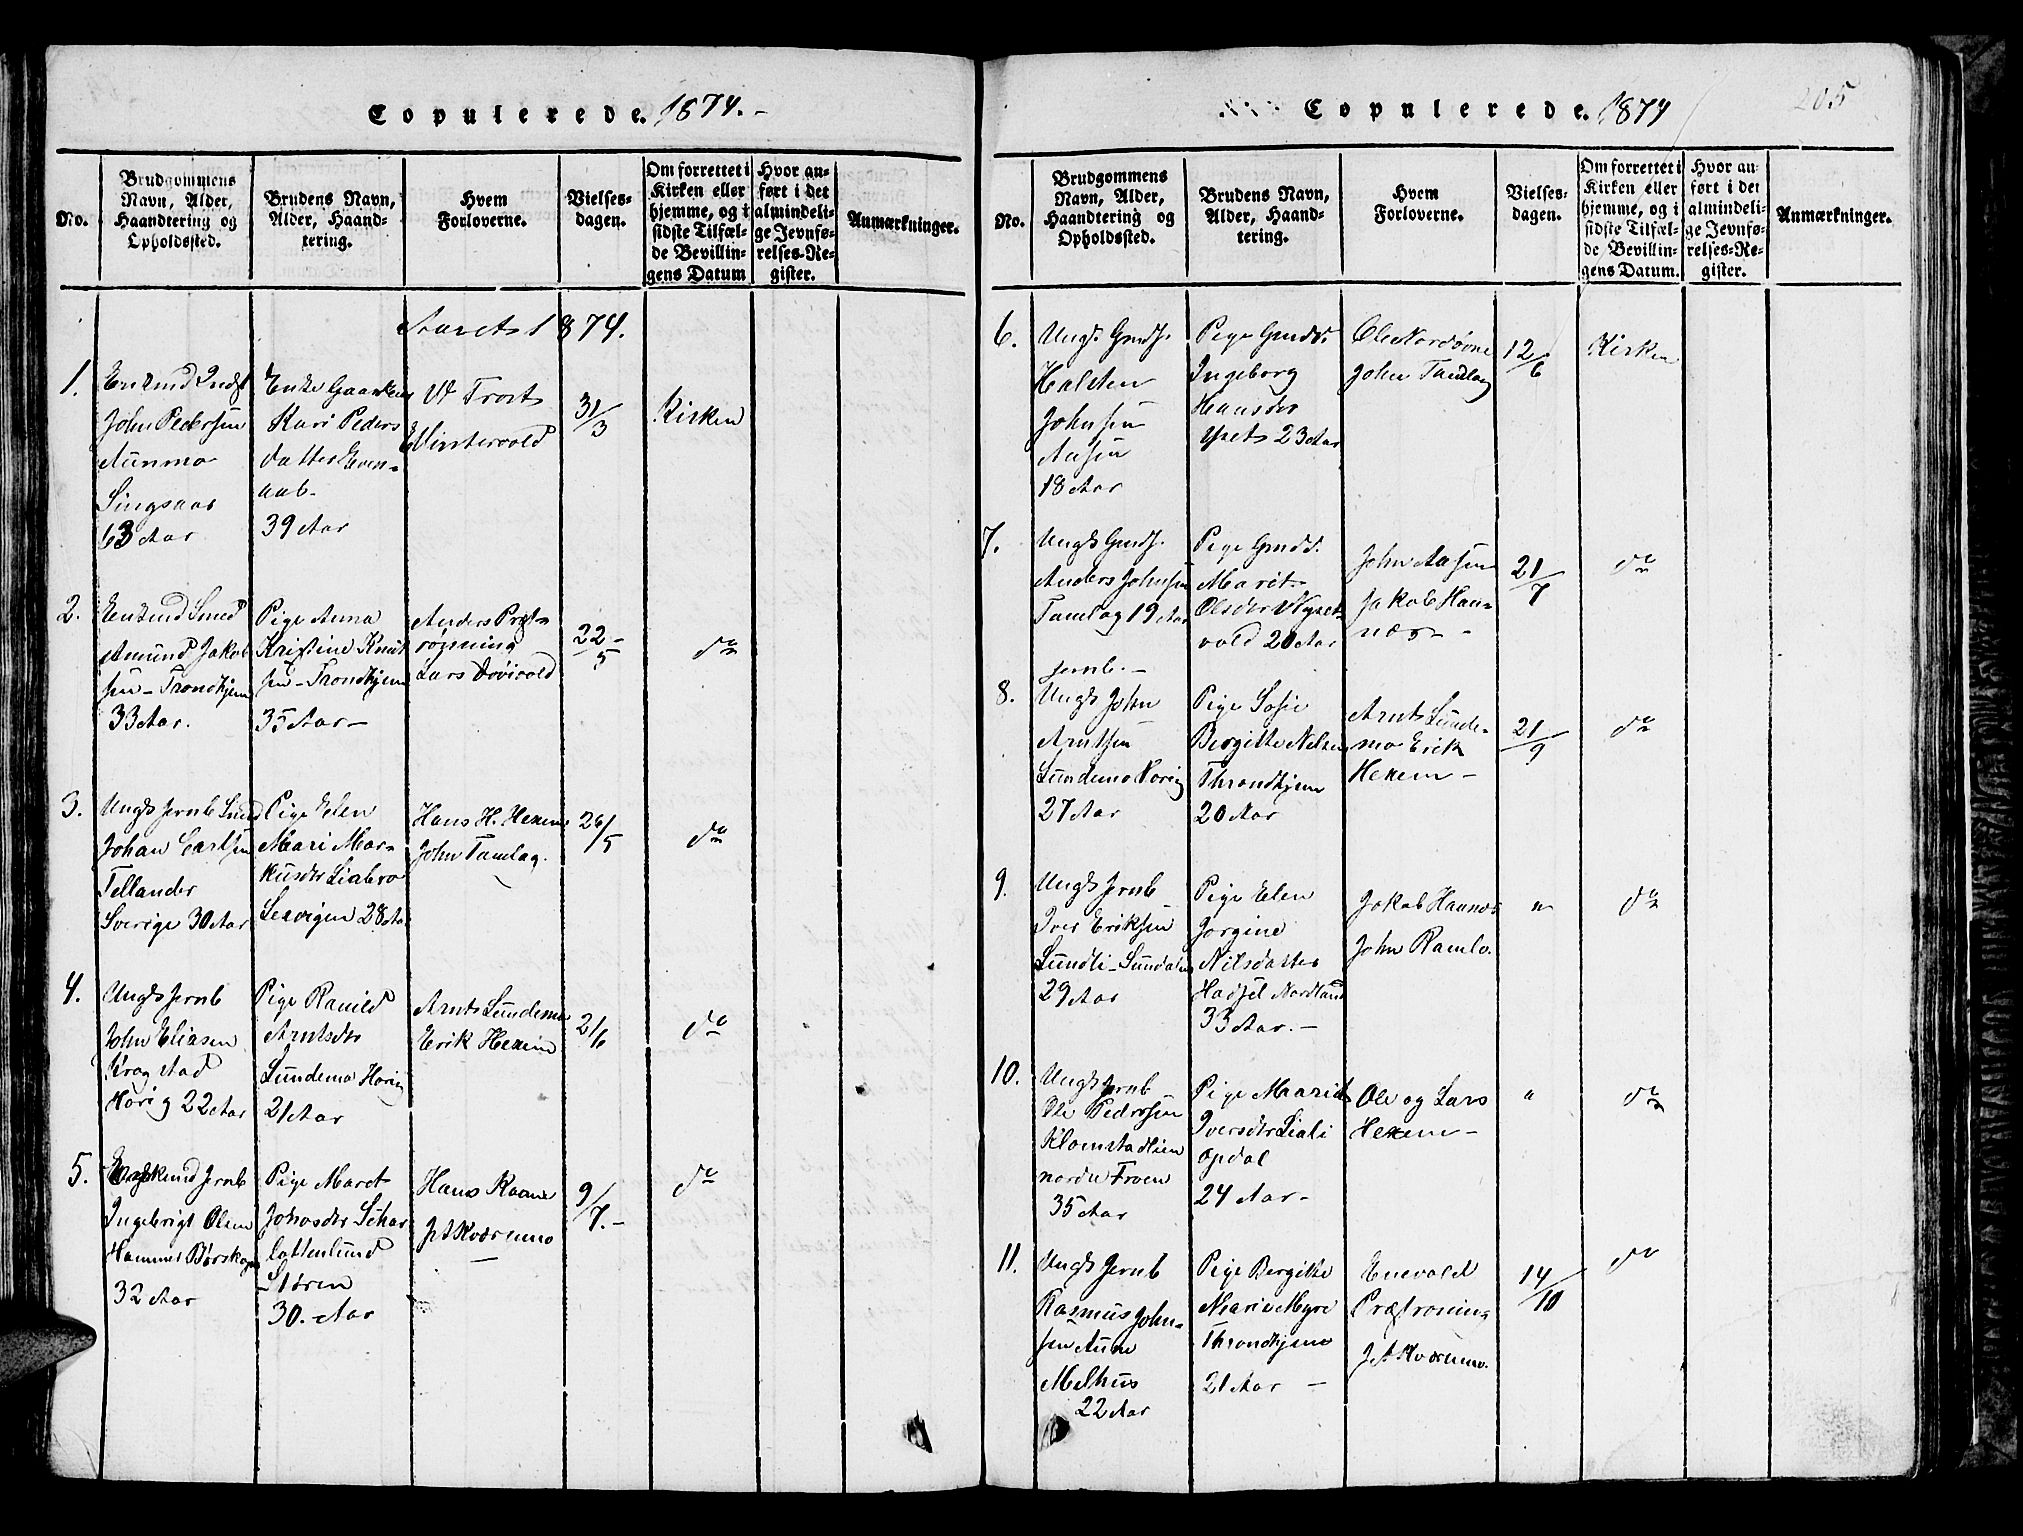 Copulerede. 1874.-
No.
Brudgommens
Navn, Alder,
Haandtering og
Opholdssted.
Brudens Navn,
Alder, Haand-
tering.
Hvem
Forloverne.
Vielses-
dagen.
Om forrettet i
Kirken eller
hjemme, og i
sidste Tilfæl-
de Bevillin-
gens Datum
Hvor an-
ført i det
almindeli-
ge Jevnfø-
relses-Re-
gister.
Anmærkninger.
Aaret 1874.
1.
Enkemd
John Pedersen
Aunmo
Singsaas
63 Aar
Enke
Kari Peders
datter Even-
39 Aar
Trost
Wintervold
31/3
Kirken
2.
Enkemd Smed
Amund Jakob
sen - Trondhjem
33 Aar.
Pige Anna
Kristine Knut
sen - Trondhjem
35 Aar -
Anders Præst-
rønning
Lars Døvivold
22/5
do
3.
Ungk Jernb Smed
Johan Carlsen
Tellander
Sverige 30 Aar
Pige Elen
Mari Mar-
kusdtr Liabro
Lexvigen 28 Aar
Hans H. Hexem
John Tamlag.
26/5
do
4.
Ungk Jernb
John Eliasen
Krogstad
Hørig 22 Aar
Pige Ranild
Arntsdtr
Lundemo Hørig
21 Aar
Arnt Lundemo
Erik Hexem
2/6
do
5.
Enkemd Jernb
Ingebrigt Olsen
Hammer Børskogn
32 Aar
Pige Maret
Johnsdtr Schar
lottenlund
Støren
30. Aar
Hans Kaane
J A Kværnmo
9/7.-
do
Copulerede. 1874
205
No.
Brudgommens
Navn, Alder,
Haandtering og
Opholdssted.
Brudens Navn,
Alder, Haand-
tering.
Hvem
Forloverne.
Vielses-
dagen.
Om forrettet i
Kirken eller
hjemme, og i
sidste Tilfæl-
de Bevillin-
gens Datum.
Hvor an-
ført i det
almindeli-
ge Jevnfø-
relses-Re-
gister.
Anmærkninger.
6.
Ungk Gmds.
Halsten
Johnsen
Aasen
18 Aar
Pige Gmdd.
Ingeborg
Hansdtr
Yset 23 Aar
Ole Nordøvne
John Tamlag
12/6
Kirken
7.
Ungk Gmds.
Anders Johnsen
Tamlag 19 Aar
Pige Gmdd.
Marit
Olsdtr Nyset
vold 20 Aar
John Aasen
Jakob Hau-
næs -
21/7
do
8.
Jernb. -
Ungk John
Arntsen
Lundemo Hørig
27 Aar
Pige Sofie
Bergitte Nilsen
Throndhjem
20 Aar
Arnt Lunde-
mo Erik
Hexem -
21/9
do
9.
Ungk Jernb
Iver Eriksen
Lundli - Sundalen
29 Aar
Pige Elen
Jorgine
Nilsdatter
Hadsel Nordland
33 Aar. -
Jakob Haunæs
John Ramlo.
"
do
10.
Ungk Jernb
Ole Pedersen
Klomstadlien
nordre Froen
35 Aar
Pige Maarit
Iversdtr Liali
Opdal
24 Aar -
Ole og Lars
Hexem -
"
do
11.
Ungk Jernb
Rasmus John-
sen Aune
Melhus
22 Aar
Pige Bergitte
Marie Myre
Throndhjem
21 Aar -
Enevold
Præstrøning
J A Kværnmo.
14/10
do